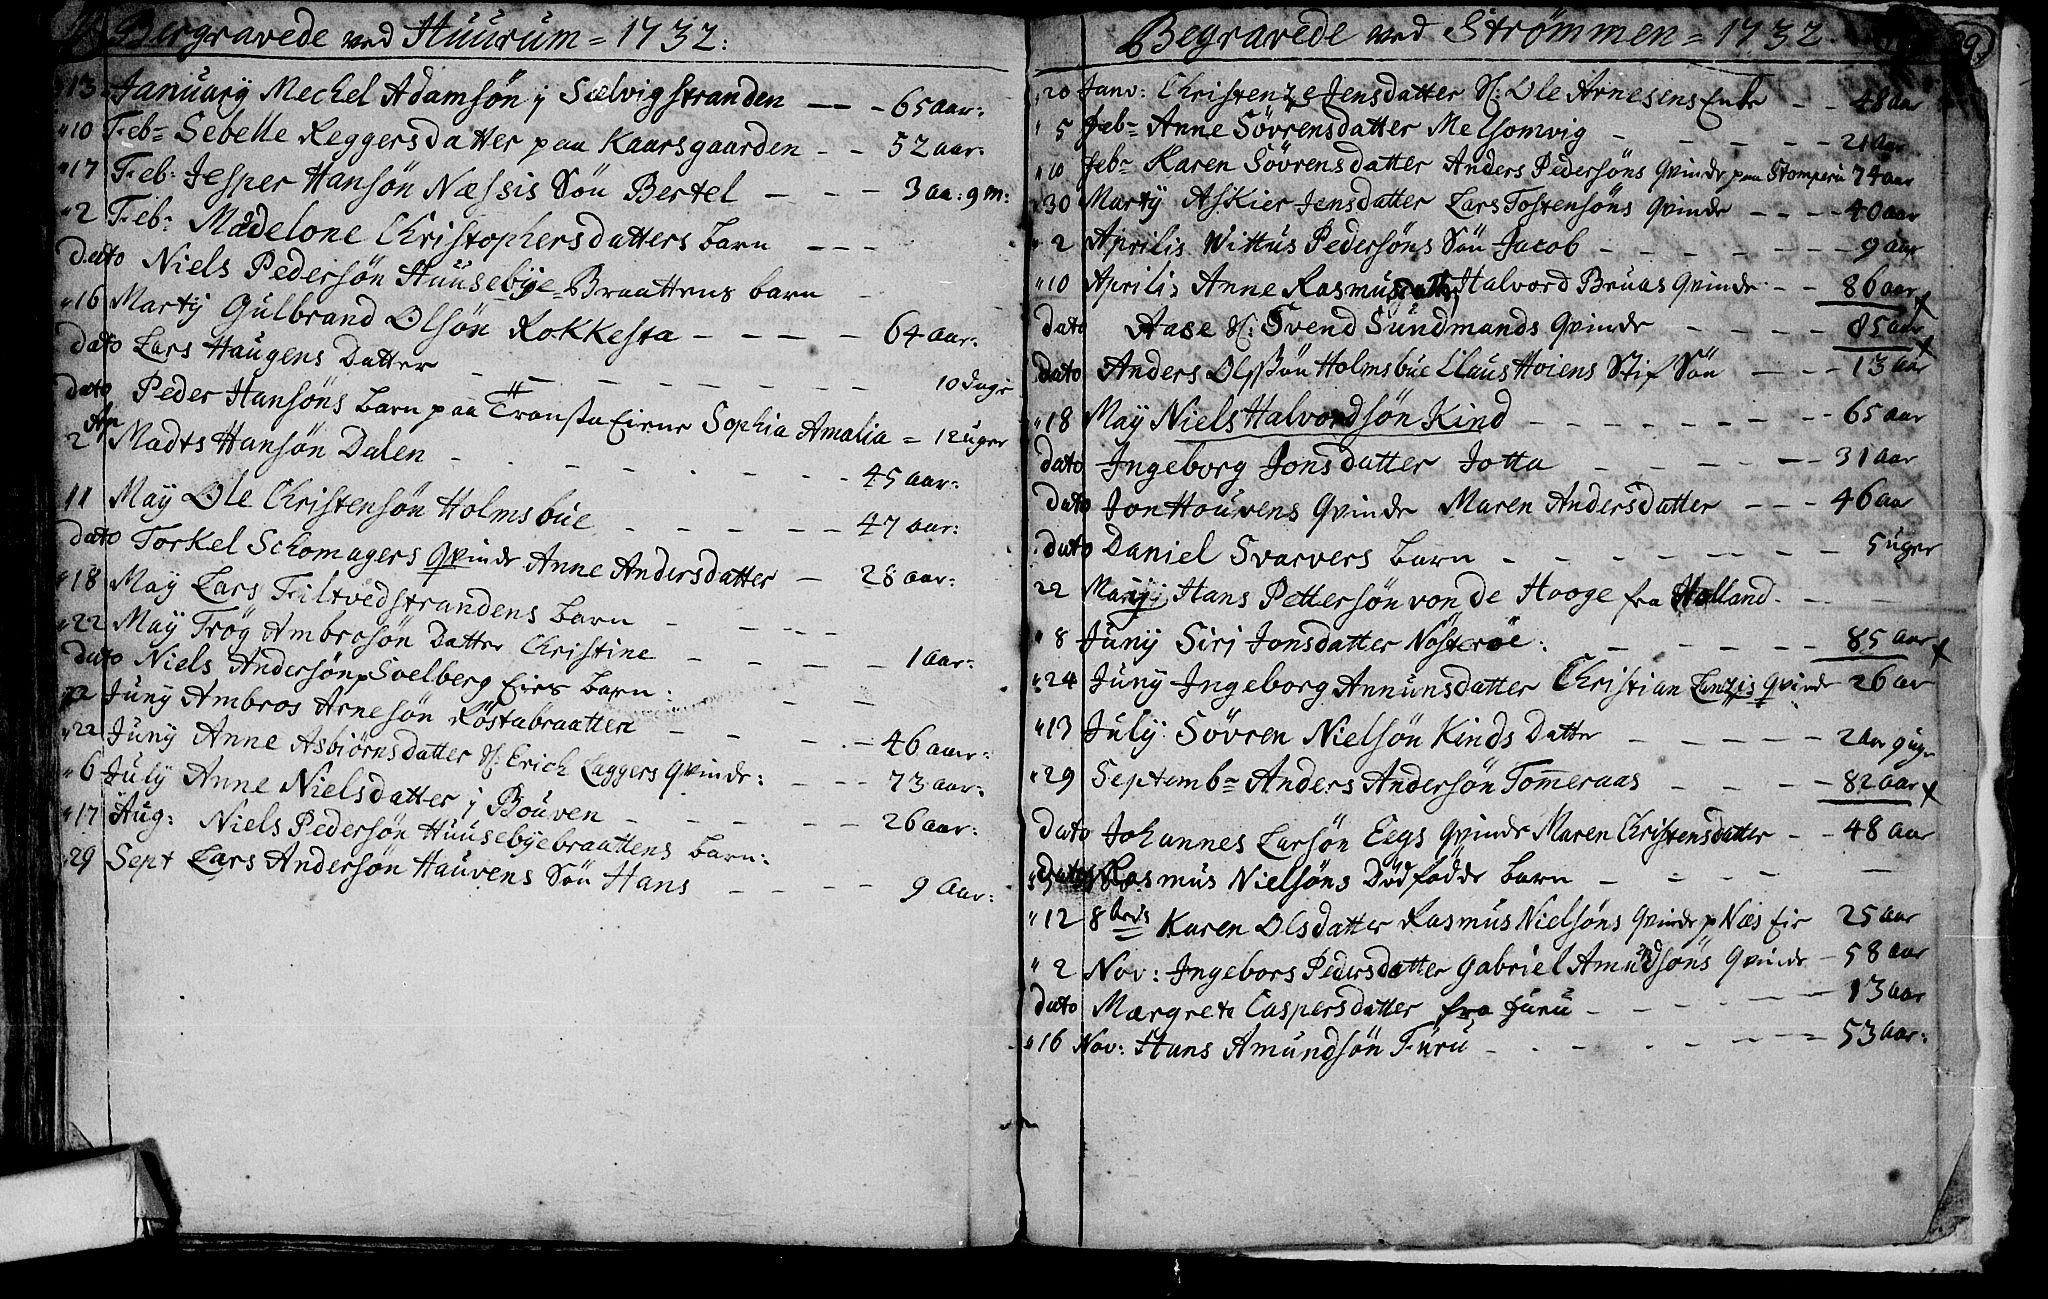 Begravede ved Huurum = 1732:
13 January Mechel Adamsön j Sælvigstranden — — - 65 aar:
10 Feb: Sebelle Reggersdatter paa Kaarsgaarden - - 52 aar:
17 Feb: Jesper Hansön Næssis Sön Bertel - - - 3 aa: 9 m:
2 Feb: Madelone Christophersdatters barn - - -
dato Niels Pedersön Huusebye-Braattens barn -
16 Martij Gulbrand Olsön Rokkesta - - - - 64 aar:
dato Lars Haugens Datter - - - - - - - 10 dage
dato Peder Hansöns barn paa Tronsta Eierne Sophia Amalia = 12 uger
2 Ap Madts Hansön Dalen - - - - - 45 aar:
11 May Ole Christensön Holmsbüe - - - - - 47 aar:
dato Torkel Schomagers Qvinde Anne Andersdatter - 28 aar:
18 May Lars Filtvedstrandens barn - - - -
22 May Trög Ambrosön Datter Christine - - - - 1 aar:
dato Niels Andersön p Soelberg Eies barn:
12 Juny Ambros Arnesön Röstabraatten - - - - 46 aar:
22 Juny Anne Asbiörnsdatter Sl: Erich Laggers Qvinde: - - - 73 aar:
6 July Anne Nielsdatter j Bouven - - - - - 26 aar:
17 Aug: Niels Pedersön Huusebyebraattens barn:
29 Sept Lars Andersön Hauvens Sön Hans - - - - 9 Aar:
Begravede ved Strömmen = 1732
20 Janv: Christenze Jensdatter Sl: Ole Arnesens Enke - - 48 aar
5 Feb: Anne Sövrensdatter Melsomvig - - - - 21 Aar
10 feb: Karen Sövrensdatter Anders Pedersöns Qvinde paa Stomperü 74 aar
30 Martij Askier Jensdatter Lars Tostensöns Qvinde - - - - 40 aar
2 Aprilis Wittus Pedersöns Sön Jacob - - - - - 9 aar
10 Aprilis Anne Rasmusdatter Halvord Bruas Qvinde - - 86 aar
dato Aase Sl: Svend Sundmands Qvinde - - - - 85 aar
dato Anders Olssön Holmsbüe Claus Hoiens Stif Sön - - - 13 aar
18 May Niels Halvordsön Kind - - - - - - - 65 aar
dato Ingeborg Jonsdatter Jotta - - - - - 31 aar
dato Jon Houvens Qvinde Maren Andersdatter - - - 46 aar
dato Daniel Svarvers barn - - - - - - 5 uger
22 May Hans Pettersön von de Hooge fra Holland - - -
8 Juny Siri Jonsdatter Nösteröe: - - - - - 85 aar
24 Juny Ingeborg Annunsdatter Christian Lanzis Qvinde 26 aar
13 July Sövren Nielsön Kinds Datter - - - - - 2 aar 9 uger
29 Septemb: Anders Andersön Tommeraas - - - - 82 aar
dato Johannes Larsön Eegs Qvinde Maren Christensdatter - - 48 aar
dato Rasmus Nielsöns Dödfödde barn - - - - -
12 8bris Karen Olsdatter Rasmus Nielsöns Qvinde p Næs Eie 25 aar
2 Nov: Ingebors Pedersdatter Gabriel Amundsöns Qvinde - 58 aar
dato Margrete Caspersdatter fra Furu - - - - 13 aar
16 Nov: Hans Amundsön Furu - - - - - - 53 aar: